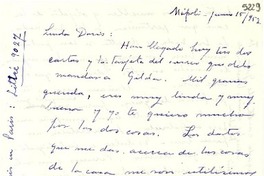 5229
Nápoli - junio 15/952
Linda Doris:
Han llegado hoy tus dos
cartas y la tarjeta del correo que debo
mandar a Gilda. Mil gracias
querida, eres muy linda y muy
buena y yo te quiero mucho
por las dos cosas. Los datos
que me das acerca de las cosas
de la casa me son utilísimos
en París: Littré 9027